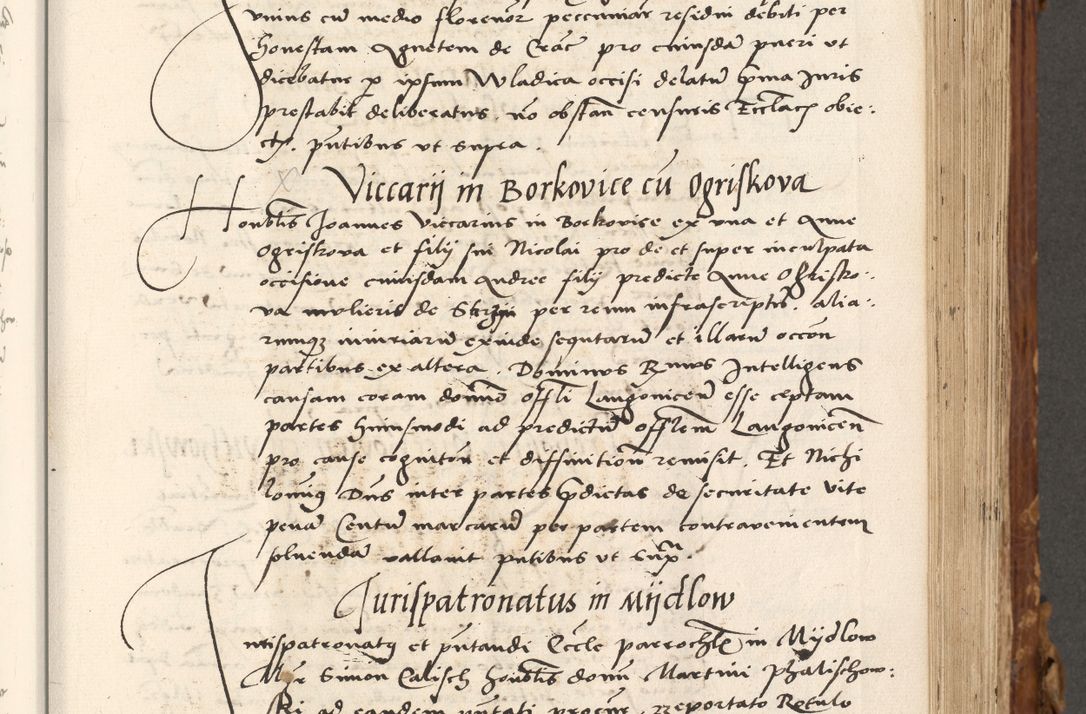 unius cu medio florenor peccuniar residui debiti per
honestam Agnetem de Crac pro cuiusda pueri ut
dicebatur p ipsum Wladica occisi delatu pma Iuris
prestabit deliberatus. no obstan censuris Ecclac obie:
ctis. pntibus ut supra.
Viccarij in Borkovice cu Ogriskova
Honblis Joannes Viccarius in Borkovice ex una et Anne
Ogriskova et filij sui Nicolai pro de et super inculpata
occisione cuiusdam Andree filij predicte Anne Ogrisko:
va mulieris de per remu infrascriptis. alia:
rumq iniuriaru exinde sequtaru et illaru occon
partibus ex altera. Dominus Rmus Intelligens
causam coram domno offli Langonicen esse ceptam
partes huiusmodi ad predictu offlem Langonicen
pro cause cogniton et diffinition remisit. Et Nichi
lomiq Dns inter partes pdictas de securitate vite
pena Centu marcaru per partem contravenientem
soluenda vallauit pntibus ut supra.
Jurispatronatus in Mijdlow
Jurispatronatq et pntandi Eccle parrochle in Mijdlow
Mgr Simon Calisch honblis domi Martini Phalischow:
ski ad eandem pntati procur. reportato Rotulo